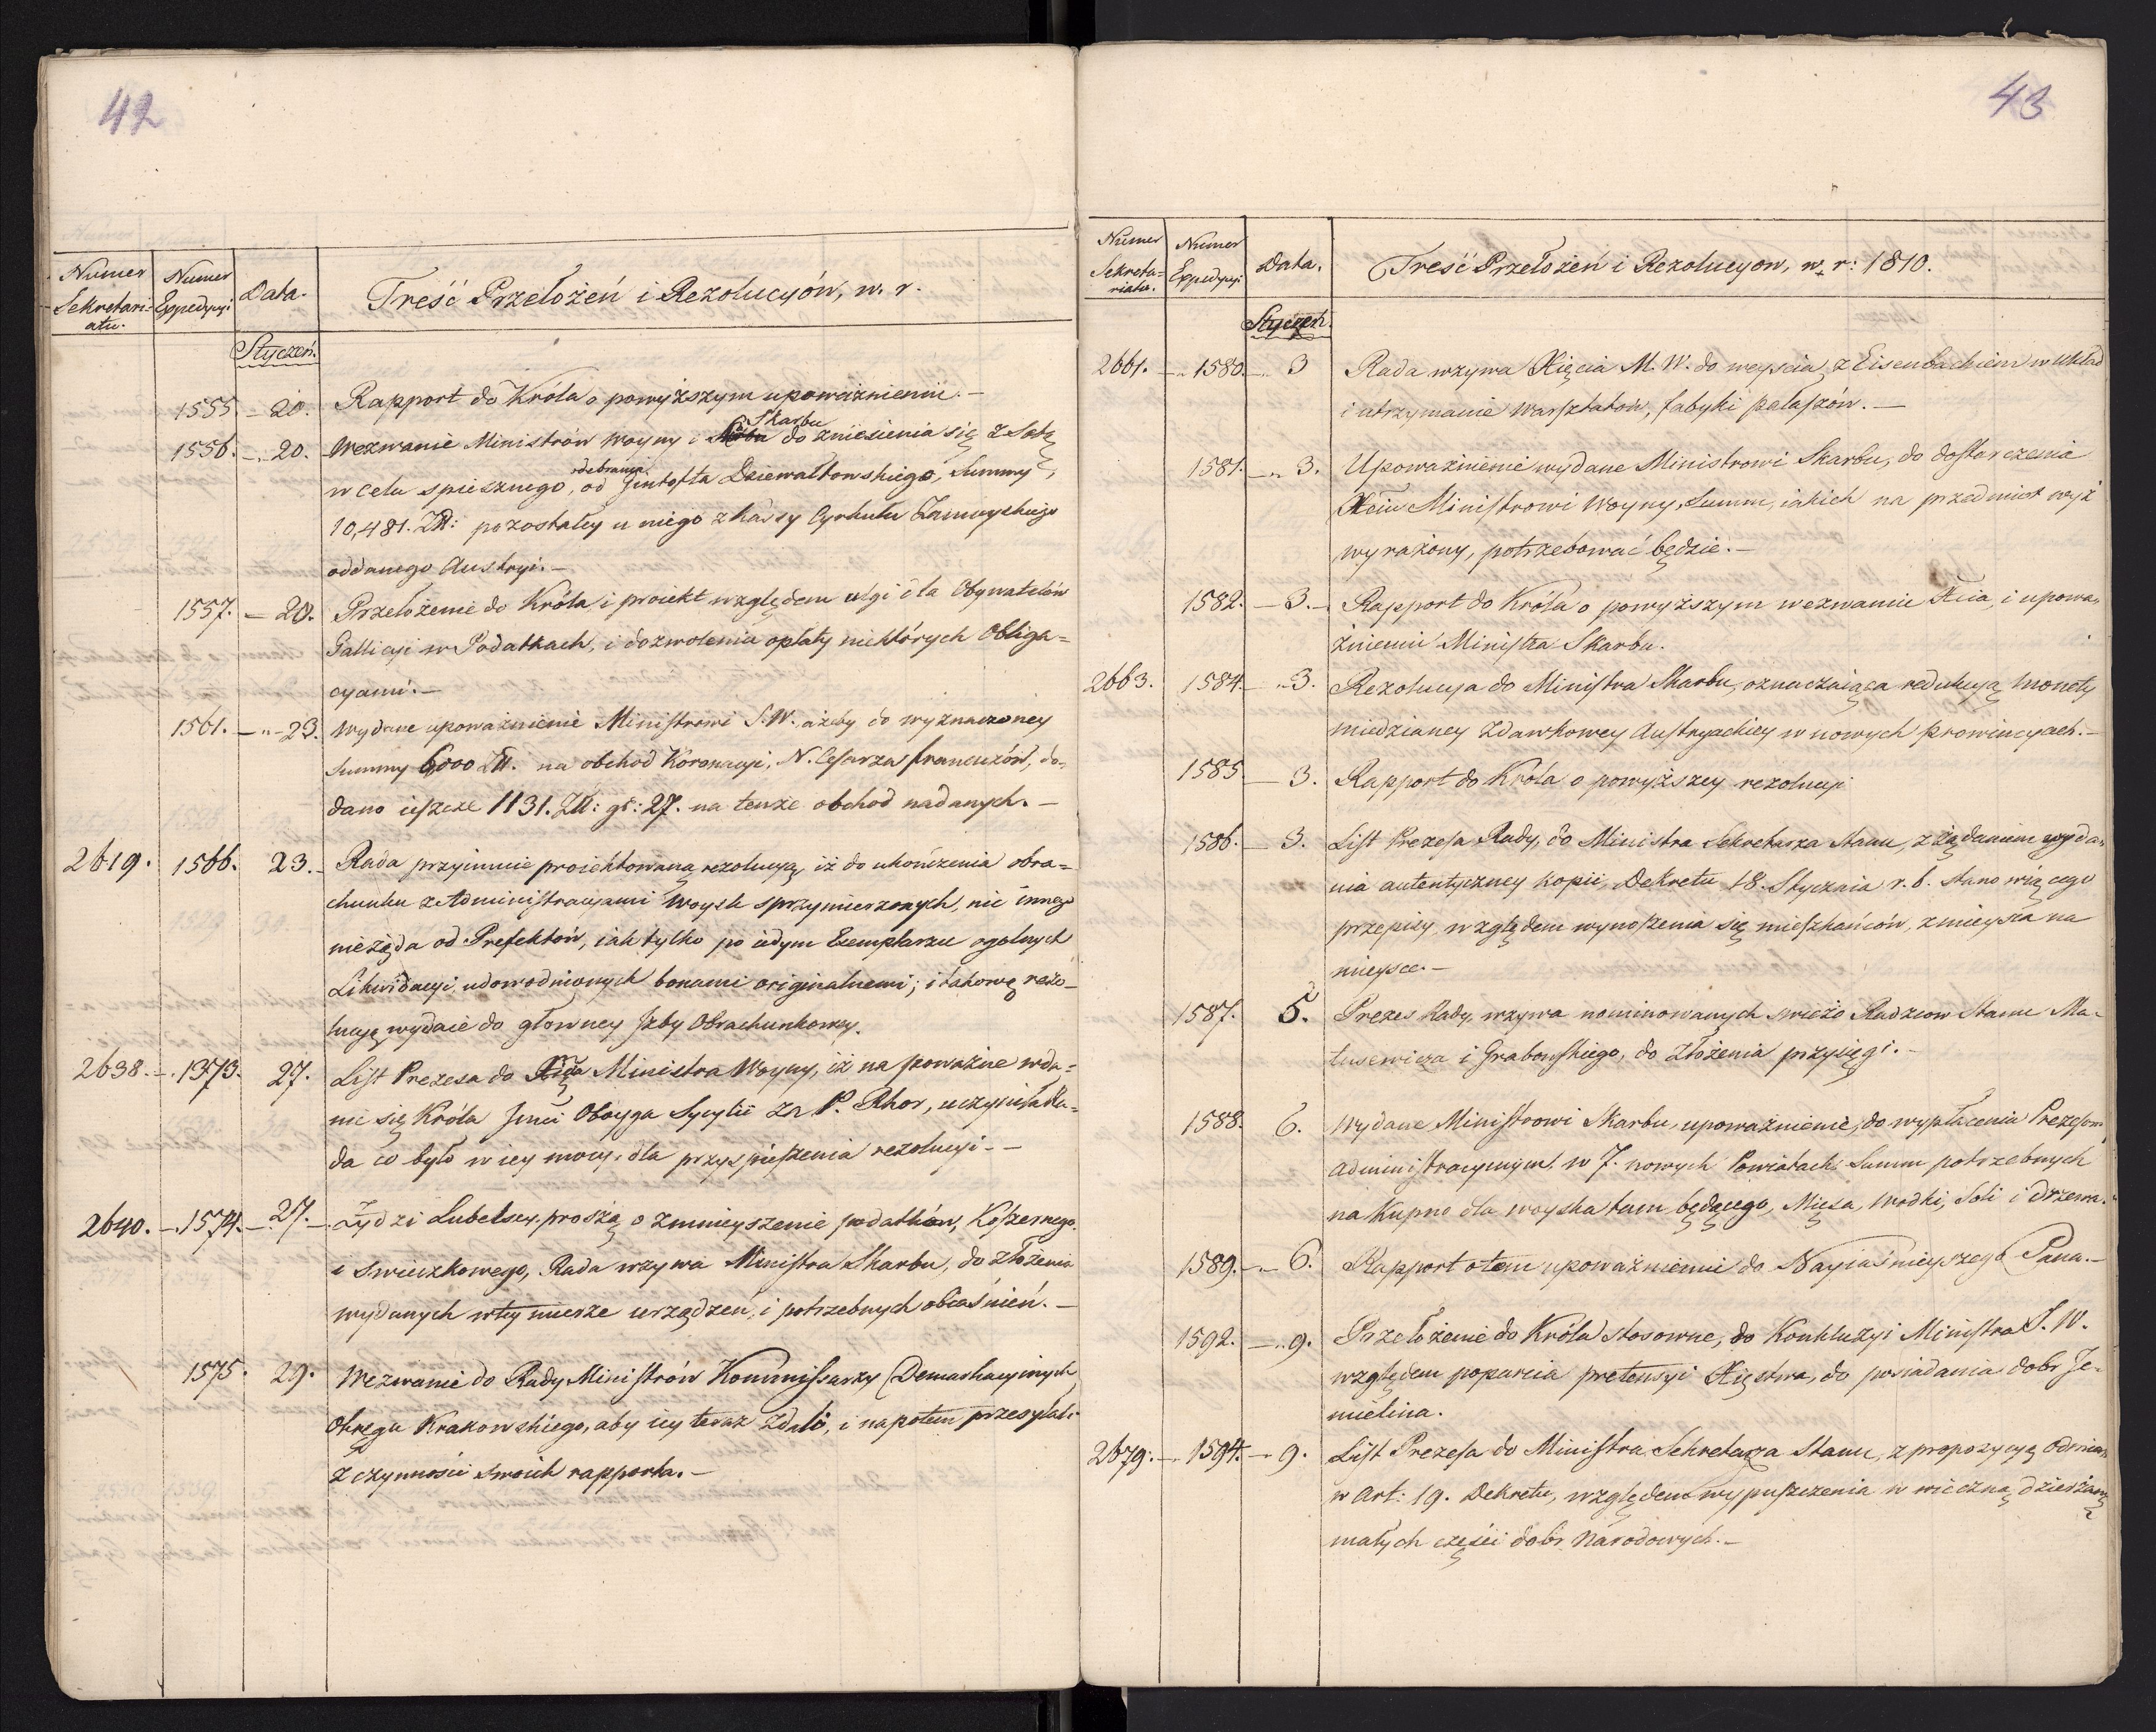 42
Numer Sekretari=atu.
Numer Expedycyi
Data.
Treść Przełożeń i Rezolucyów, w. r.
Styczeń.
1555 – 20. Rapport do Króla o powyższym upoważnieniu. –
1556. – 20. Wezwanie Ministrów Woyny i Skarbu do zniesienia się z Sobą
w celu spiesznego, odebrania od Dziewałtowskiego, Summy
10,481. Złł: pozostałey u niego z kassy Cyrkułu Zamoyskiego
oddanego Austryi. –
1557. – 20. Przełożenie do Króla i proiekt względem ulgi dla Obywatelów
Gallicyi w Podatkach, i dozwolenia opłaty niektórych Obliga=
cyami. –
1561. – 23. Wydane upoważnienie Ministrowi S. W. ażeby do wyznaczoney
Summy 6,000 Złł. na obchod Koronacyi, N. Cesarza francuzów, do=
dano ieszcze 1131. Złł: gr: 27. na tenże obchod nadanych. –
2619. 1566. 23. – Rada przyimuie proiektowaną rezolucyą, iż do ukończenia obra=
chunku z Administracyami Woysk sprzymierzonych, nic innego
nieżąda od Prefektów, iak tylko po iednym Exemplarzu ogolnych
Likwidacyi udowodnionych bonami originalnemi; i takową rezo=
lucyą wydaie do głowney Izby Obrachunkowey.
2638. – 1573. 27. List Prezesa do Xcia Ministra Woyny, iż na poważne wda=
nie się Króla Jmci Oboyga Sycylii za P. Rhor, uczyniła Ra=
da co było w iey mocy, dla przyspieszenia rezolucyi. –
2640. – 1574. – 27. – Żydzi Lubelscy, proszą o zmnieyszenie podatków, Koszernego
i Swieczkowego, Rada wzywa Ministra Skarbu, do złożenia
wydanych w tey mierze urządzeń, i potrzebnych obiaśnień. –
1575. 29. Wezwanie do Rady Ministrów Kommissarzy Demarkacyinych
Okręgu Krakowskiego, aby iey teraz zdali, i napotem przesyłali
z czynności swoich rapporta. –
43
Numer Sekreta=riatu.
Numer Expedycyi
Data.
Treść Przełożeń i Rezolucyow, w. r: 1810.
Styczeń.
2661. – 1580. – 3 Rada wzywa Xięcia M. W. do weyscia z Eisenbachiem w układ
i utrzymanie Warsztatów, fabyki pałaszów. –
1581. – 3. Upoważnienie wydane Ministrowi Skarbu, do dostarczenia
Xciu Ministrowi Woyny, Summ, iakich na przedmiot wyż
wyrażony, potrzebować będzie. –
1582. – 3. – Rapport do Króla o powyższym wezwaniu Xcia, i upowa=
żnieniu Ministra Skarbu.
2663. 1584. – 3. Rezolucya do Ministra Skarbu, oznaczaiąca redukcyą monety
miedzianey zdawkowey Austryackiey w nowych prowincyach. –
1585 – 3. Rapport do Króla o powyższey rezolucyi
1586. – 3. List Prezesa Rady, do Ministra Sekretarza Stanu, z żądaniem wyda=
nia autentyczney kopii, Dekretu 18. Stycznia r. b. stanowiącego
przepisy względem wynoszenia się mieszkańców, z mieysca na
mieysce. –
1587. 5. Prezes Rady, wzywa nominowanych swieżo Radzcow Stanu Ma=
tusewicza i Grabowskiego, do złożenia przysięgi. –
1588. 6. Wydane Ministrowi Skarbu, upoważnienie, do wypłacenia Prezesom
Administracyinym, w 7. nowych Powiatach, Summ potrzebnych
na kupno dla woyska tam będącego, Mięsa, Wodki, Soli i drzewa.
1589. – 6. Rapport o tem upoważnieniu do Nayiaśnieyszego Pana. –
1592. – 9. Przełożenie do Króla stosowne, do Konkluzyi Ministra S. W.
względem poparcia pretensyi Xięstwa, do posiadania dobr Je=
mielina.
2679. – 1594. – 9. List Prezesa do Ministra Sekretarza Stanu, z propozycyą odmian
w Art: 19. Dekretu, względem wypuszczenia w wieczną dzierżawę
małych części dobr Narodowych. –